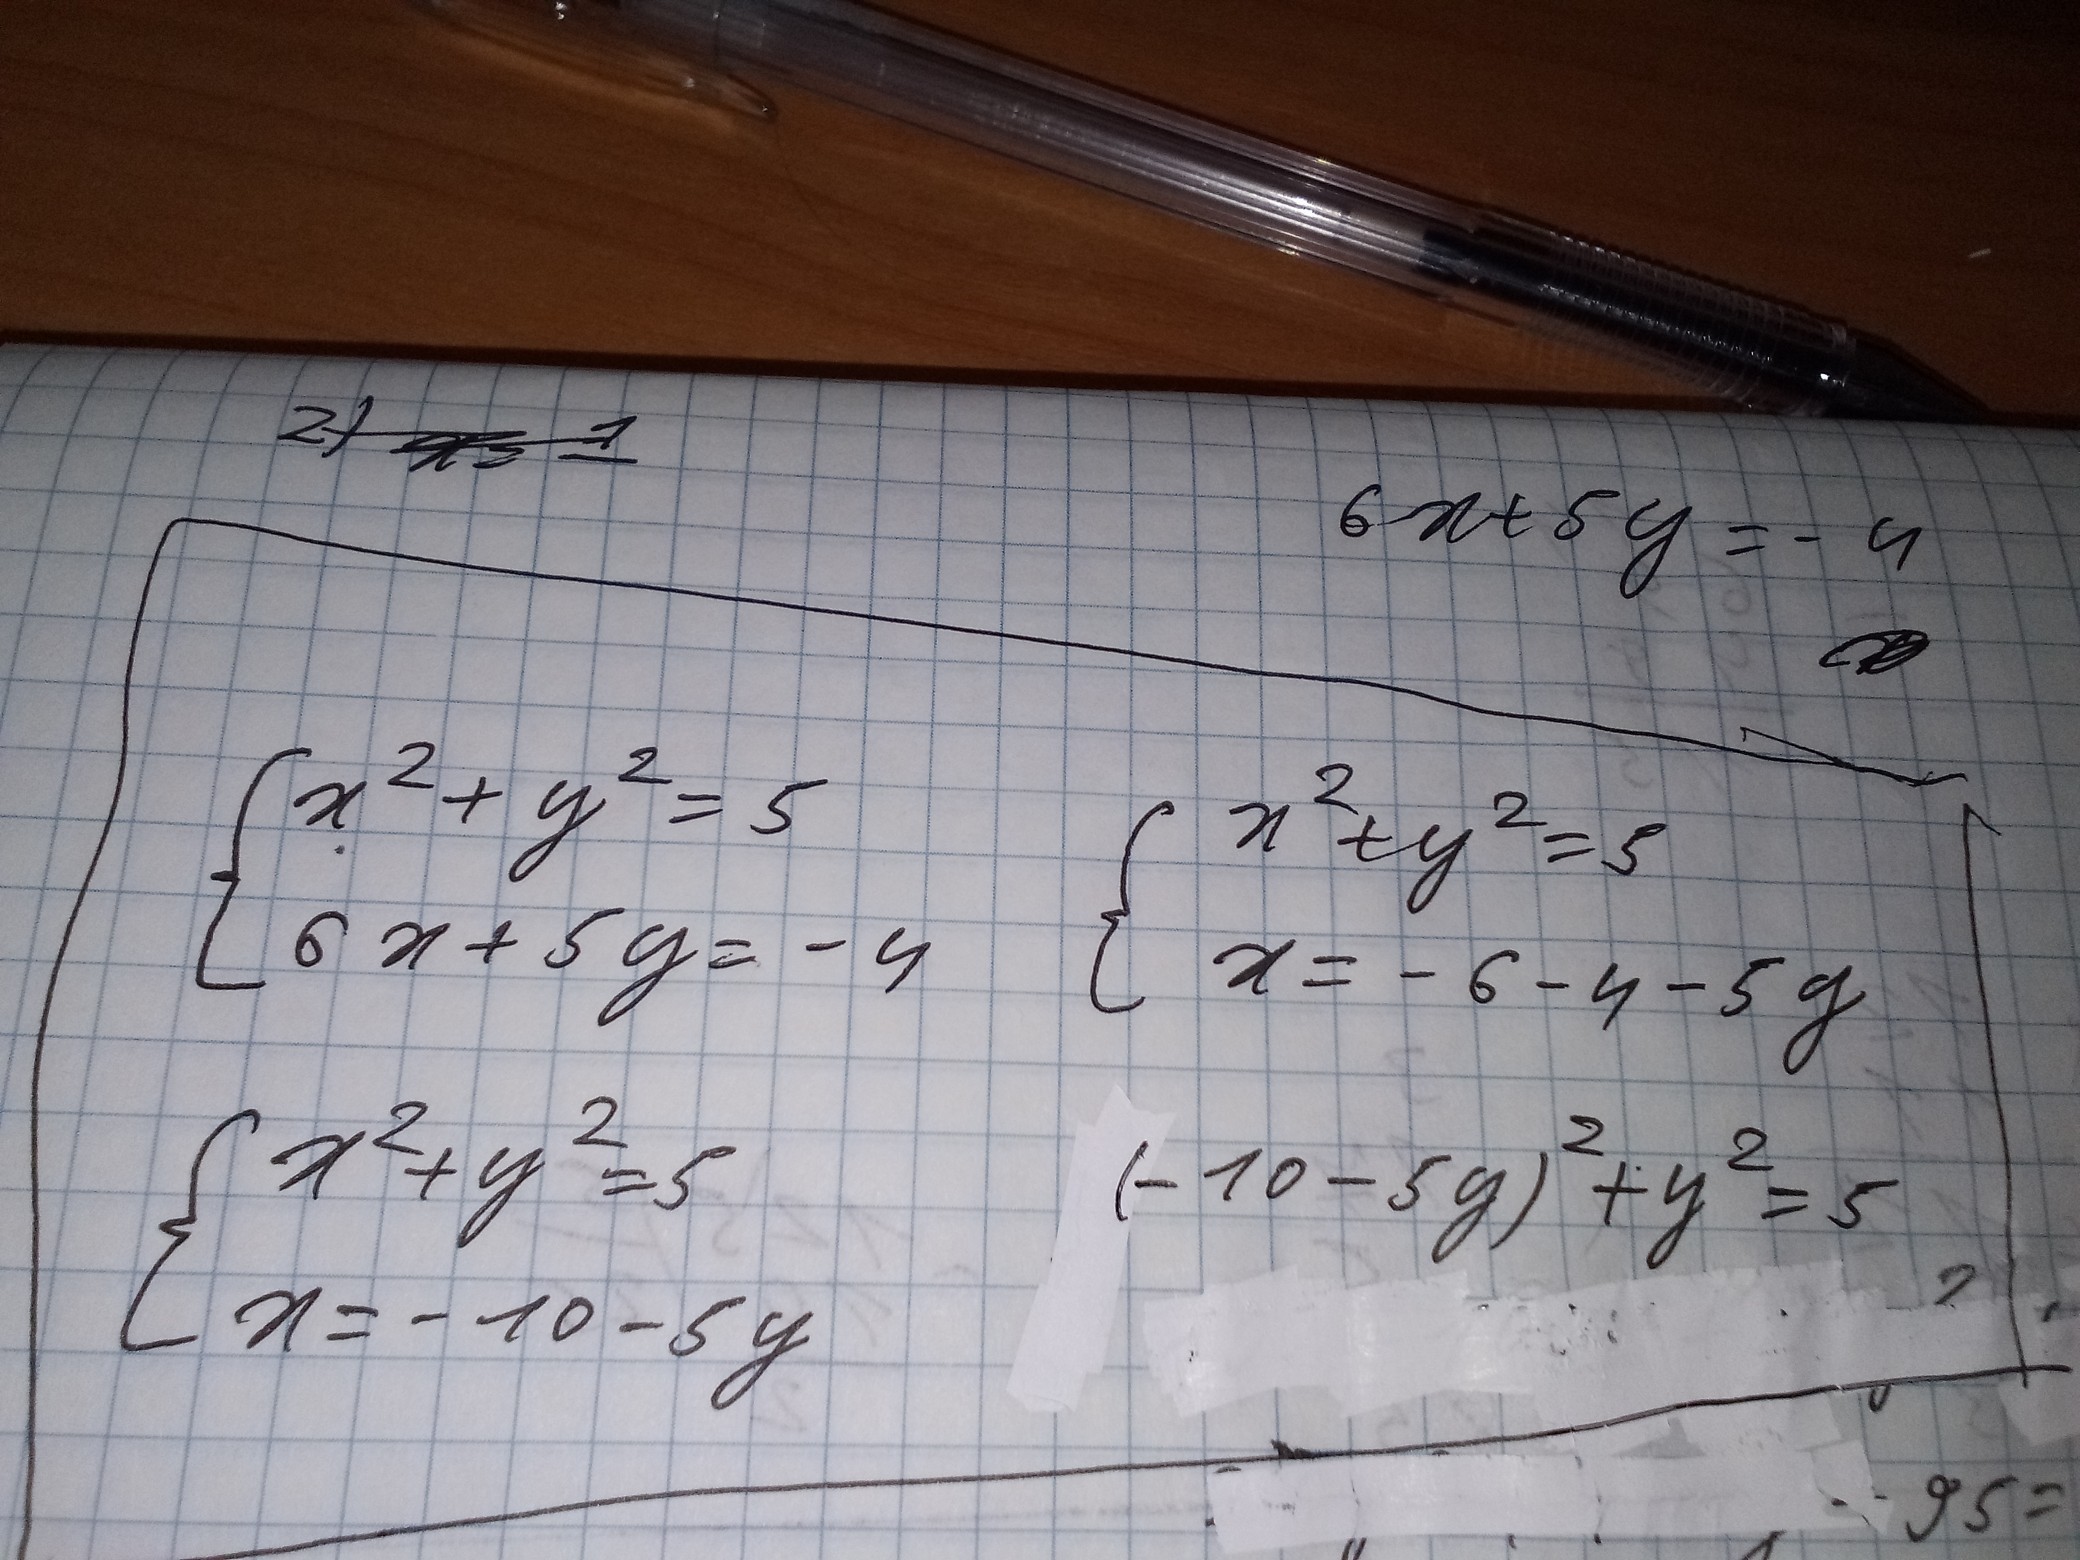 2) x = 1
6x+5y=-4
x²+y²=5
6x+5y=-4
x²+y²=5
x=-6-4-5y
x²+y²=5
x=-10-5y
(-10-5y)²+y²=5
2
95=